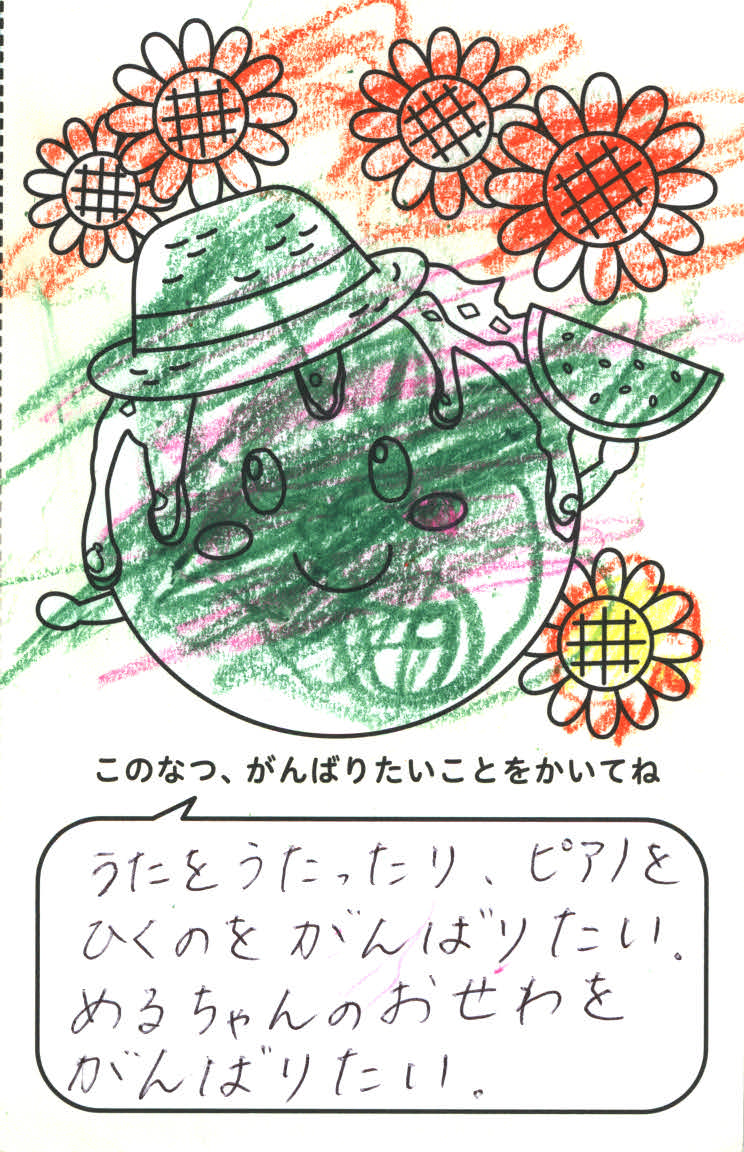 このなつ、がんばりたいことをかいてね
うたをうたったり、ピアノを
ひくのをがんばりたい。
めるちゃんのおせわを
がんばりたい。